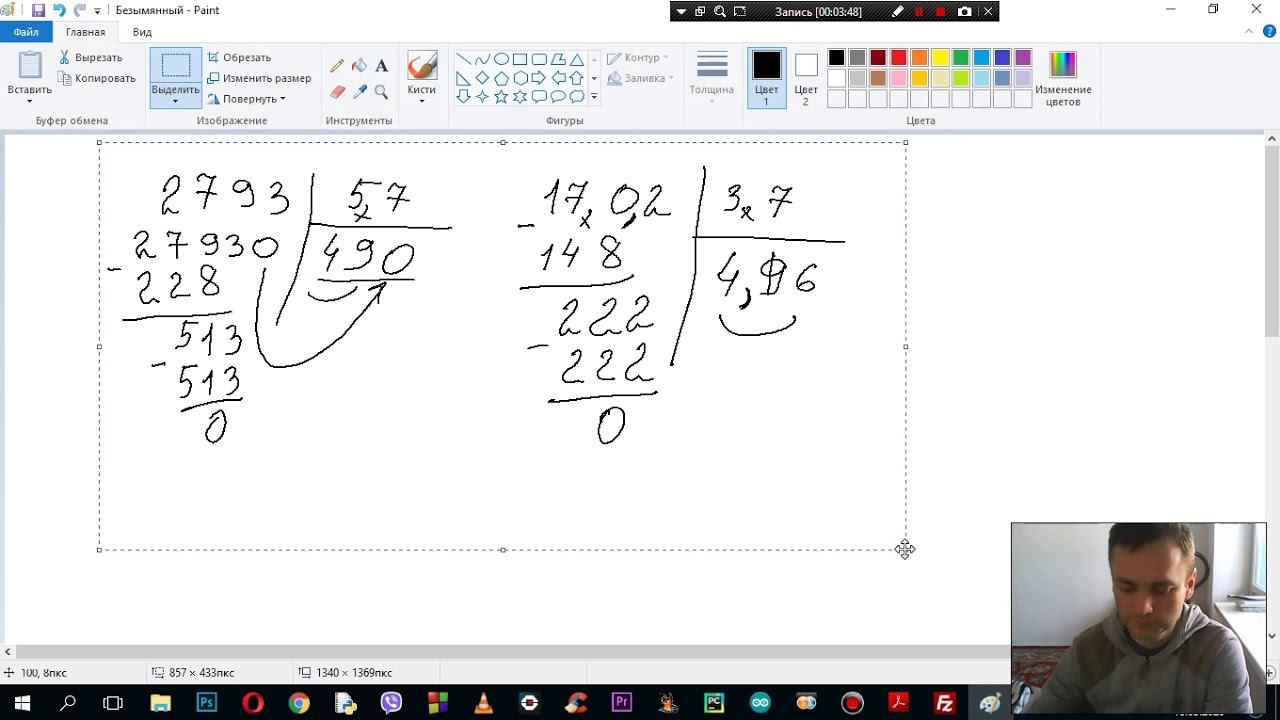 Безымянный - Paint
Запись [00:03:48]
Файл Главная Вид
Вставить
Вырезать
Копировать
Выделить
Обрезать
Изменить размер
Повернуть
A
Кисти
Контур
Заливка
Толщина
Цвет 1
Цвет 2
Изменение цветов
Буфер обмена Изображение Инструменты Фигуры Цвета
2793 5,7
27930 490
- 228
513
- 513
0
17,0,2 3,7
- 148 4,6
222
- 222
0
100, 8пкс 857 × 433пкс 1340 × 1369пкс
Ps Pr PC Fz